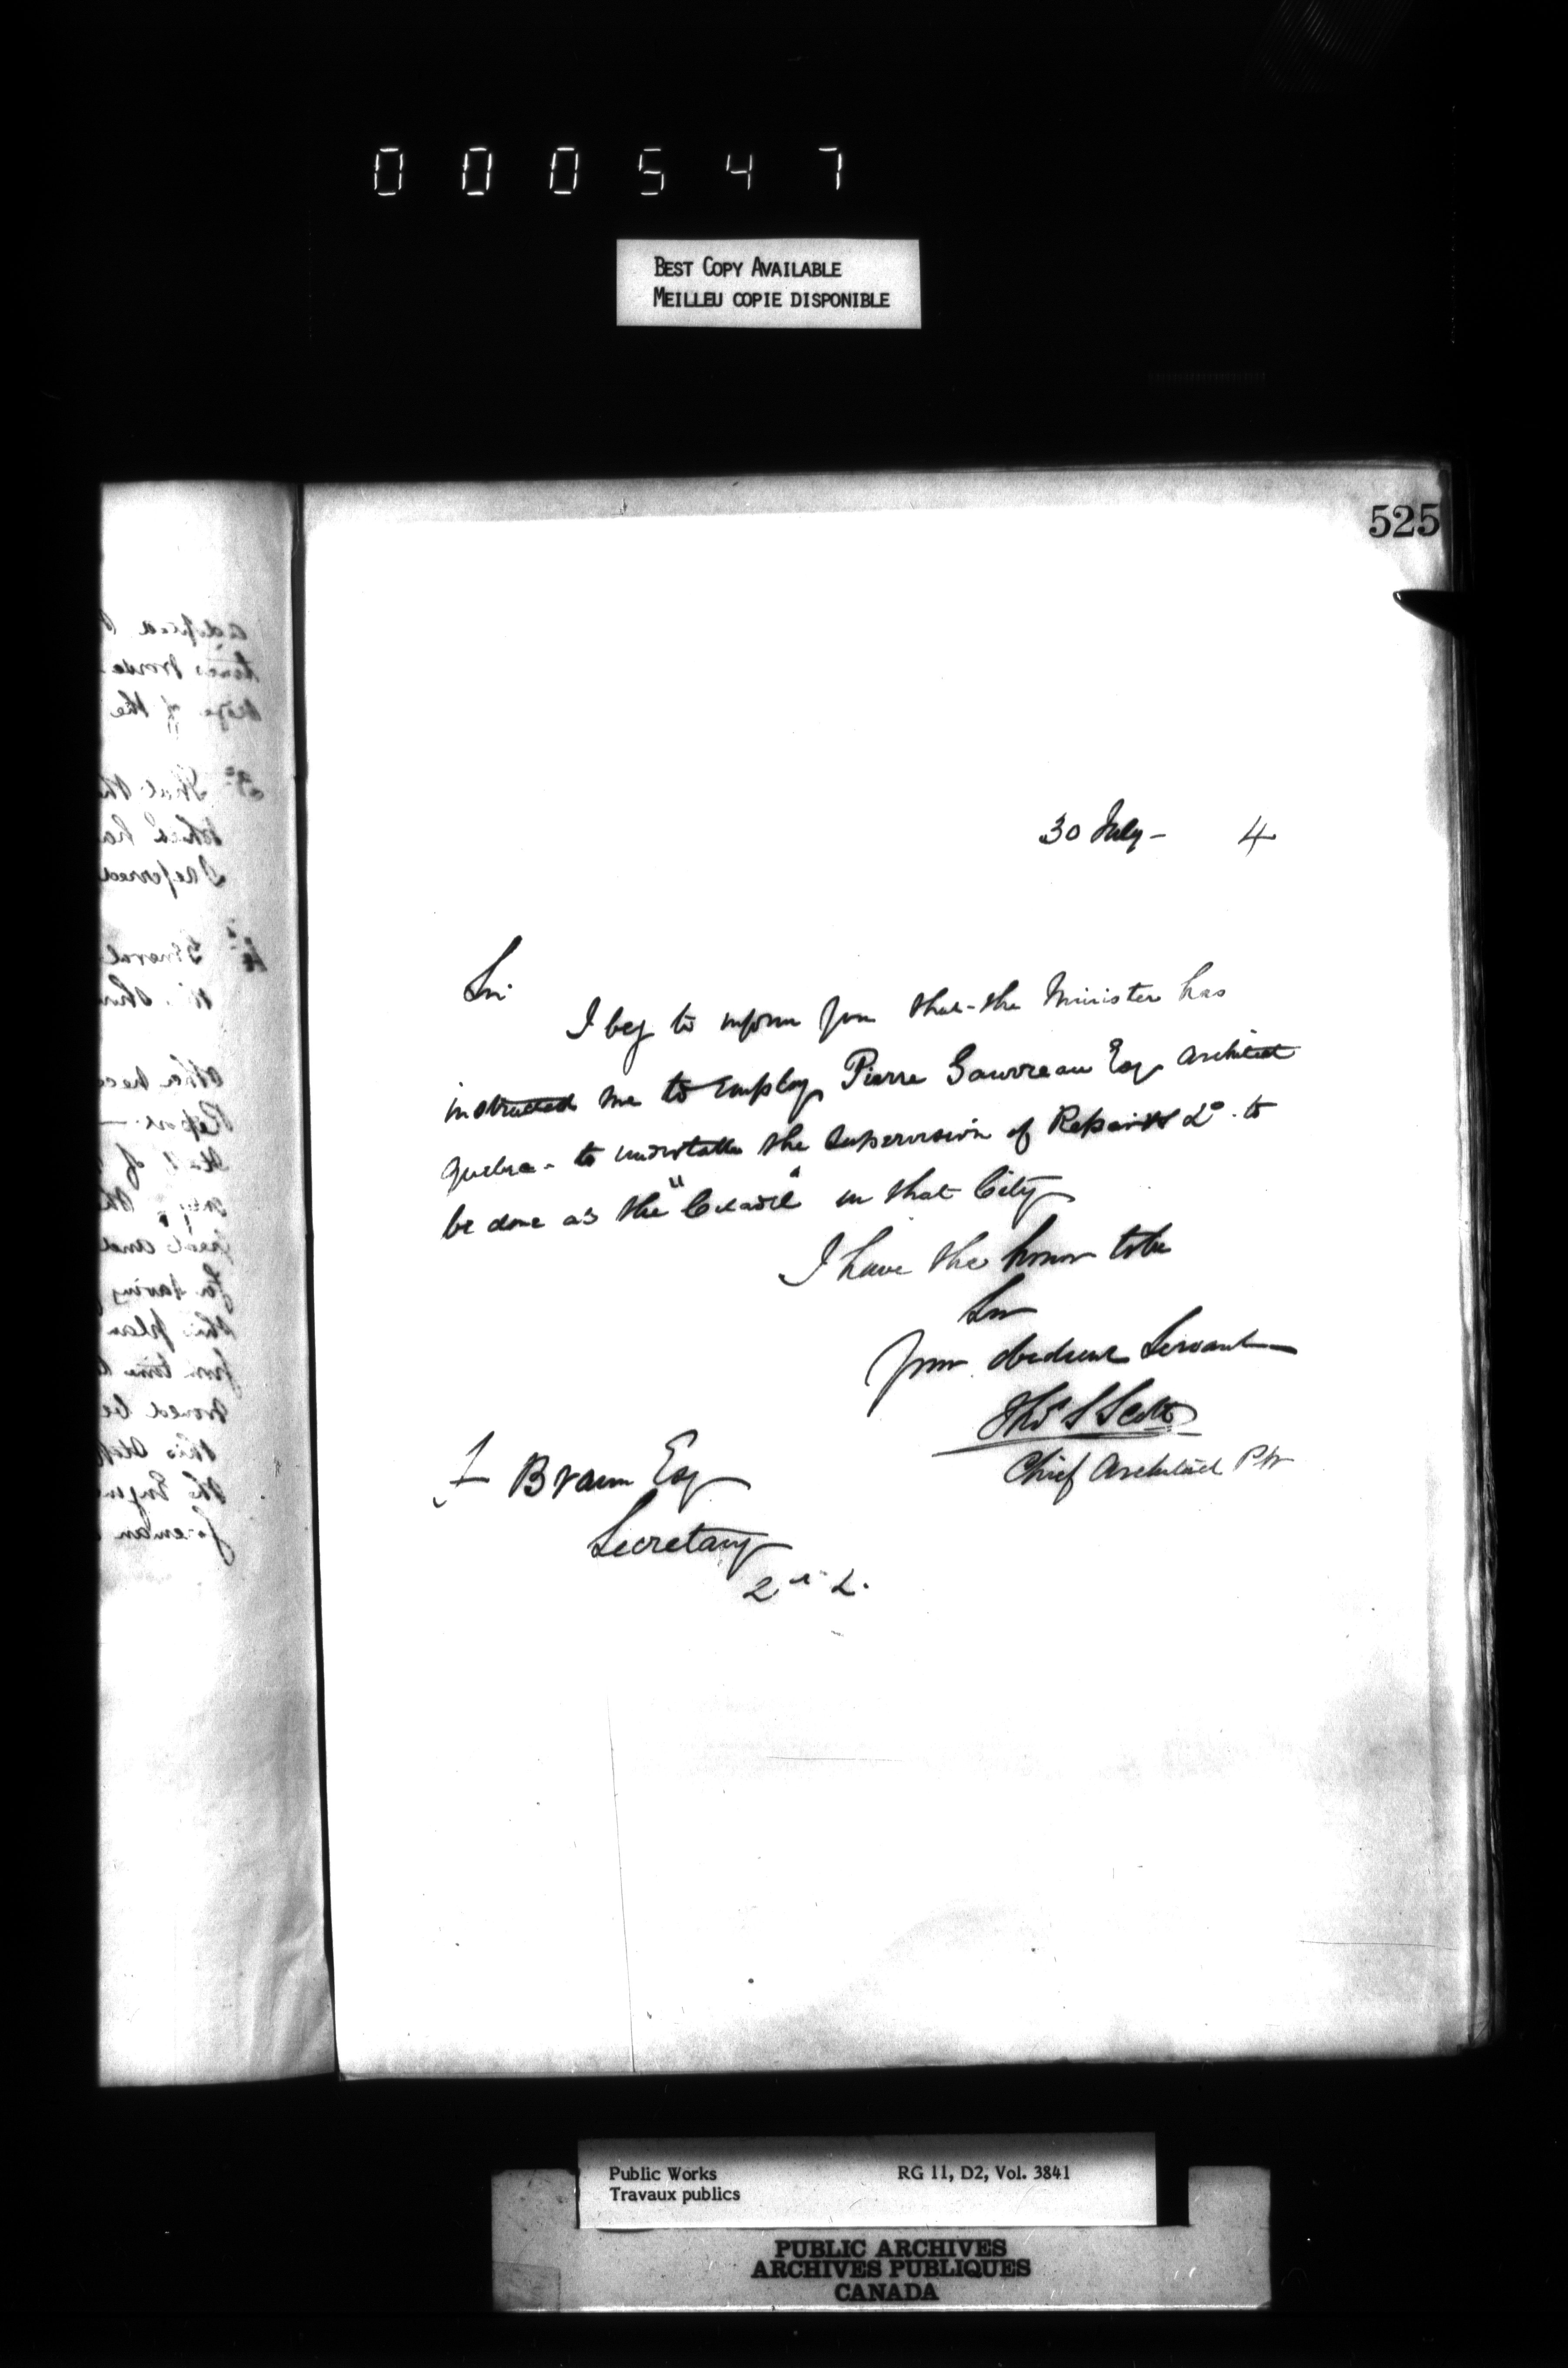 000547
BEST COPY AVAILABLE
MEILLEU COPIE DISPONIBLE
525
30 July - 4
Sir
I beg to inform you that the Minister has
instructed me to employ Pierre Gauvreau Esq Architect
Quebec - to undertake the supervision of Repairs &c. to
be done as the "Citadel" in that City
I have the honor to be
Sir
Your obedient Servant
Thos S Scott
Chief Architect PW
F Braun Esq
Secretary
Public Works RG 11, D2, Vol. 3841
Travaux publics
PUBLIC ARCHIVES
ARCHIVES PUBLIQUES
CANADA